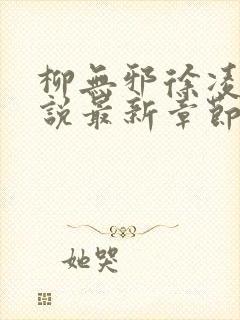 柳無邪徐凌
說最新章節
她哭